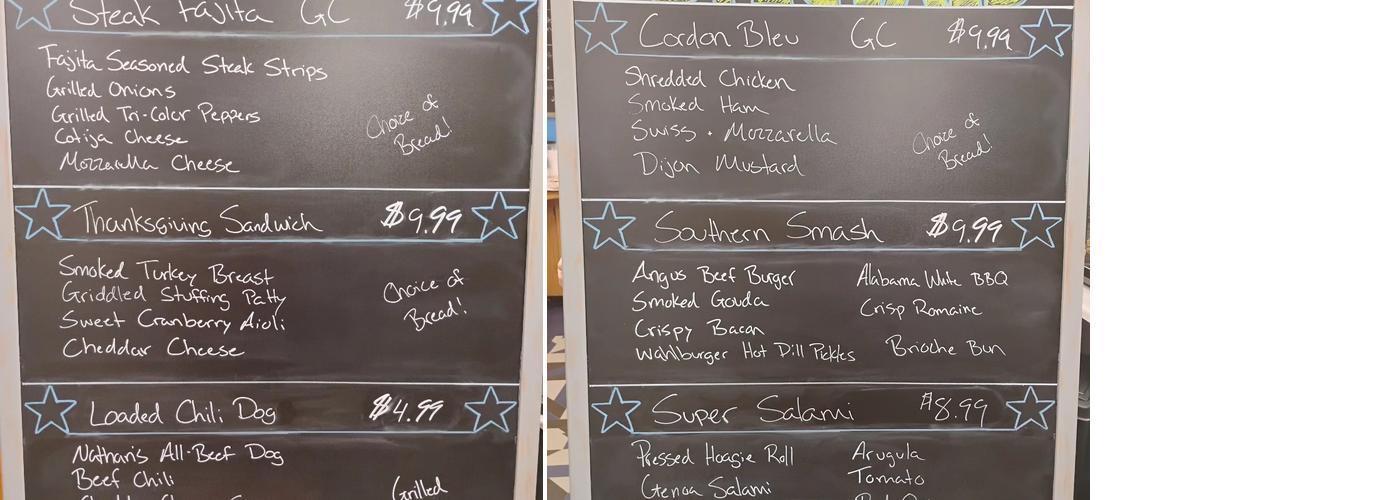 Steak Fajita GC $9.99
Fajita Seasoned Steak Strips
Grilled Onions
Grilled Tri-Color Peppers
Cotija Cheese
Mozzarella Cheese
Choice of
Bread!
Thanksgiving Sandwich $9.99
Smoked Turkey Breast
Griddled Stuffing Patty
Sweet Cranberry Aioli
Cheddar Cheese
Choice of
Bread!
Loaded Chili Dog $4.99
Nathan's All-Beef Dog
Beef Chili
Grilled
Cordon Bleu GC $9.99
Shredded Chicken
Smoked Ham
Swiss · Mozzarella
Dijon Mustard
Choice of
Bread!
Southern Smash $9.99
Angus Beef Burger
Smoked Gouda
Crispy Bacon
Wahlburger Hot Dill Pickles
Alabama White BBQ
Crisp Romaine
Brioche Bun
Super Salami $8.99
Pressed Hoagie Roll
Genoa Salami
Arugula
Tomato